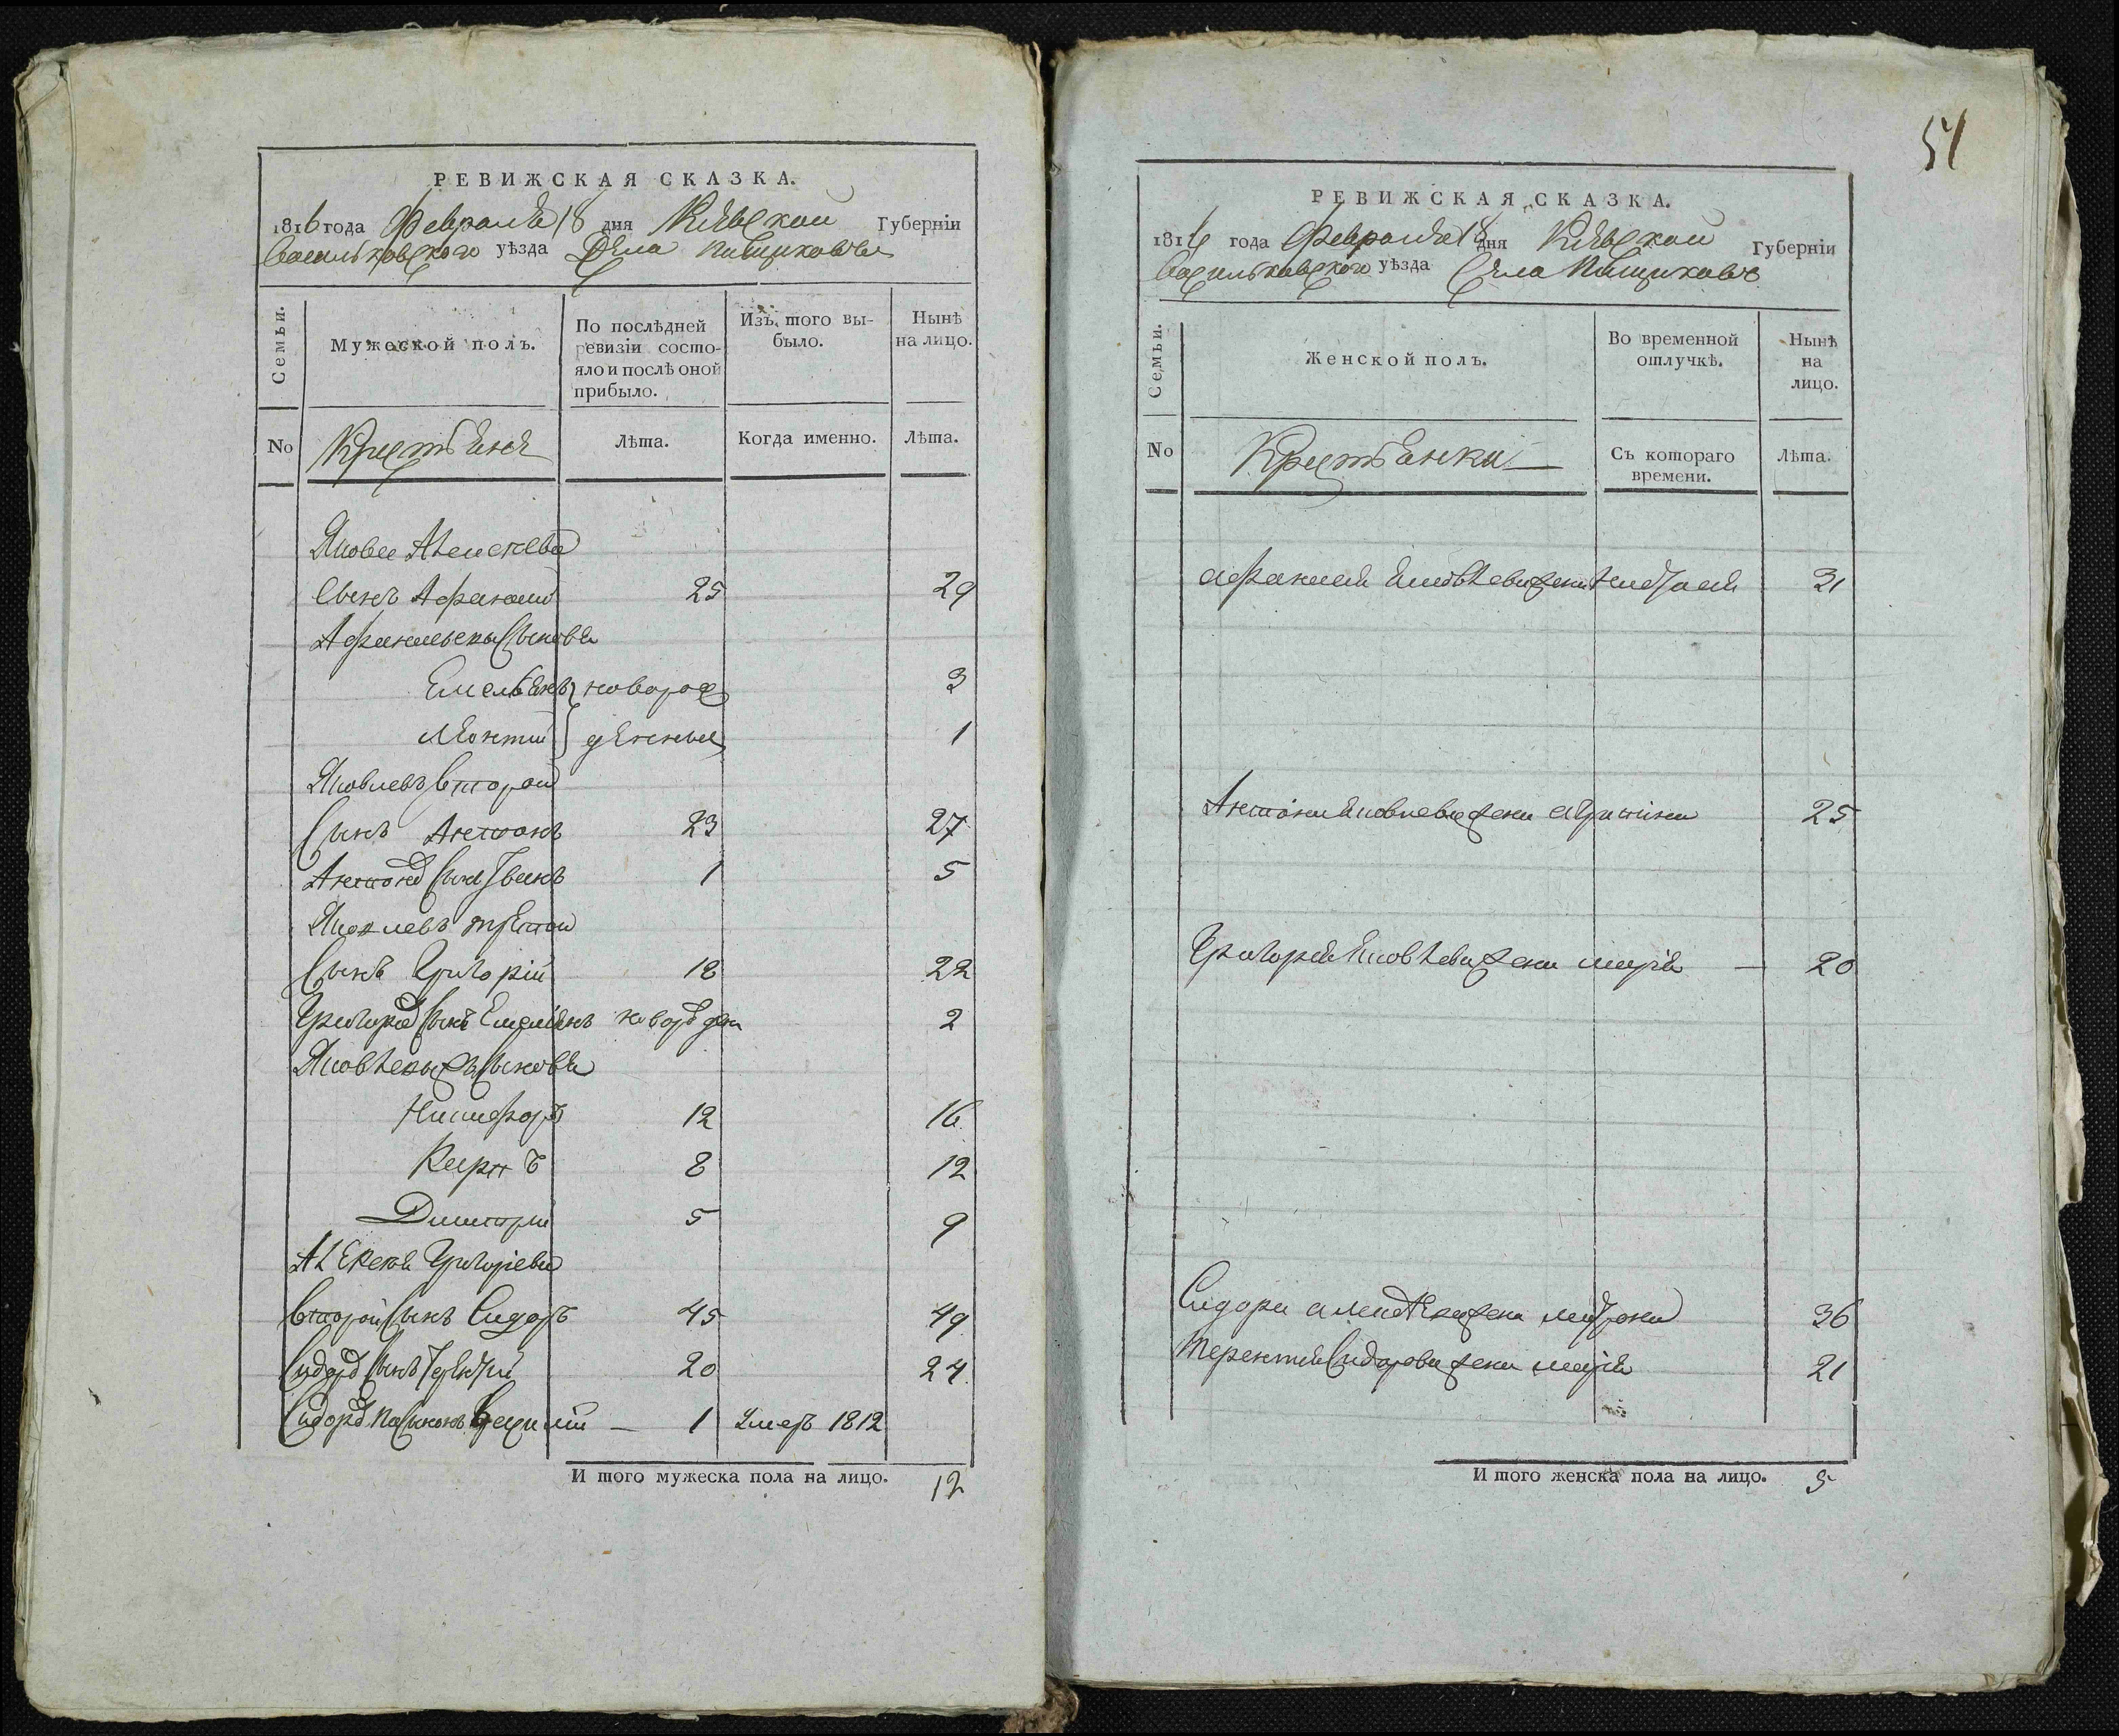 РЕВИЖСКАЯ СКАЗКА.
1816 года Февраля 18 дня Кіевской Губерніи
Васильковского уѣзда Села Пищиковъ
Семьи.
Мужеской полъ.
По послѣдней ревизіи состо-
яло и послѣ оной прибыло.
Изъ того вы-
было.
Нынѣ на лицо.
No
Крестьяне
Лѣта.
Когда именно.
Лѣта.
Якова Алексеева
Сынъ Афанасий 25 29
Афанасьевы Сыновья
Емельянъ новорож 3
Леонтий денные 1
Яковлевъ Второй
Сынъ Антонъ 23 27
Антонов Сынъ Иванъ 1 5
Яковлевъ третой
Сынъ Григорій 18 22
Григорьев Сынъ Емельянъ новорожден 2
Яковлевы Сыновья
Никифоръ 12 16
Карпъ 8 12
Дмитрий 5 9
Алексея Григорьева
Второй Сынъ Сидоръ 45 49
Сидоров Сынъ Терентий 20 24
Сидоров пасынокъ — 1 Умеръ 1812
И того мужеска пола на лицо. 12
51
РЕВИЖСКАЯ СКАЗКА.
1816 года Февраля 18 дня Кіевской Губерніи
Васильковского уѣзда Села Пищиковъ
Семьи.
Женской полъ.
Во временной
отлучкѣ.
Нынѣ
на
лицо.
No
Крестьянки
Съ котораго
времени.
Лѣта.
Афанасия Яковлева жена 31
Антона Яковлева жена 25
Григория Яковлева жена Мария — 20
Сидора Алексеева жена Матрона 36
Терентия Сидорова жена Мария 21
И того женска пола на лицо. 5